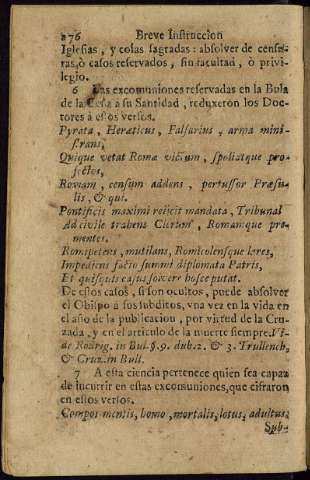 276 Breve Instruccion
Iglesias, y cosas sagradas: absolver de censu-
ras, ò casos reservados, sin facultad, ò privi-
legio.
6 Las excomuniones reservadas en la Bula
de la Cena a su Santidad, reduxeron los Doc-
tores à estos versos.
Pyrata, Hæreticus, Falsarius, arma mini-
strans,
Quique vetat Romæ victum, spoliatque pro-
fectos,
Romam, censum addens, percussor Præsu-
lis, & qui.
Pontificis maximi reijcit mandata, Tribunal
Ad civile trahens Clerum, Romamque pre-
mentes.
Romipetens, mutilans, Romicolensque
Impediens summi diplomata Patris,
Et quisquis hosce putat.
De estos casos, si son ocultos, puede absolver
el Obispo à sus subditos, vna vez en la vida en
el año de la publicacion, por virtud de la Cru-
zada, y en el articulo de la muerte siempre. Vi-
de Rodrig. in Bul. §. 9. dub. 2. & 3. Trullench,
& Cruz. in Bull.
7 A esta ciencia pertenece quien sea capaz
de incurrir en estas excomuniones, que cifraron
en estos versos.
Compos mentis, homo, mortalis, lotus, adultus,
Sub-